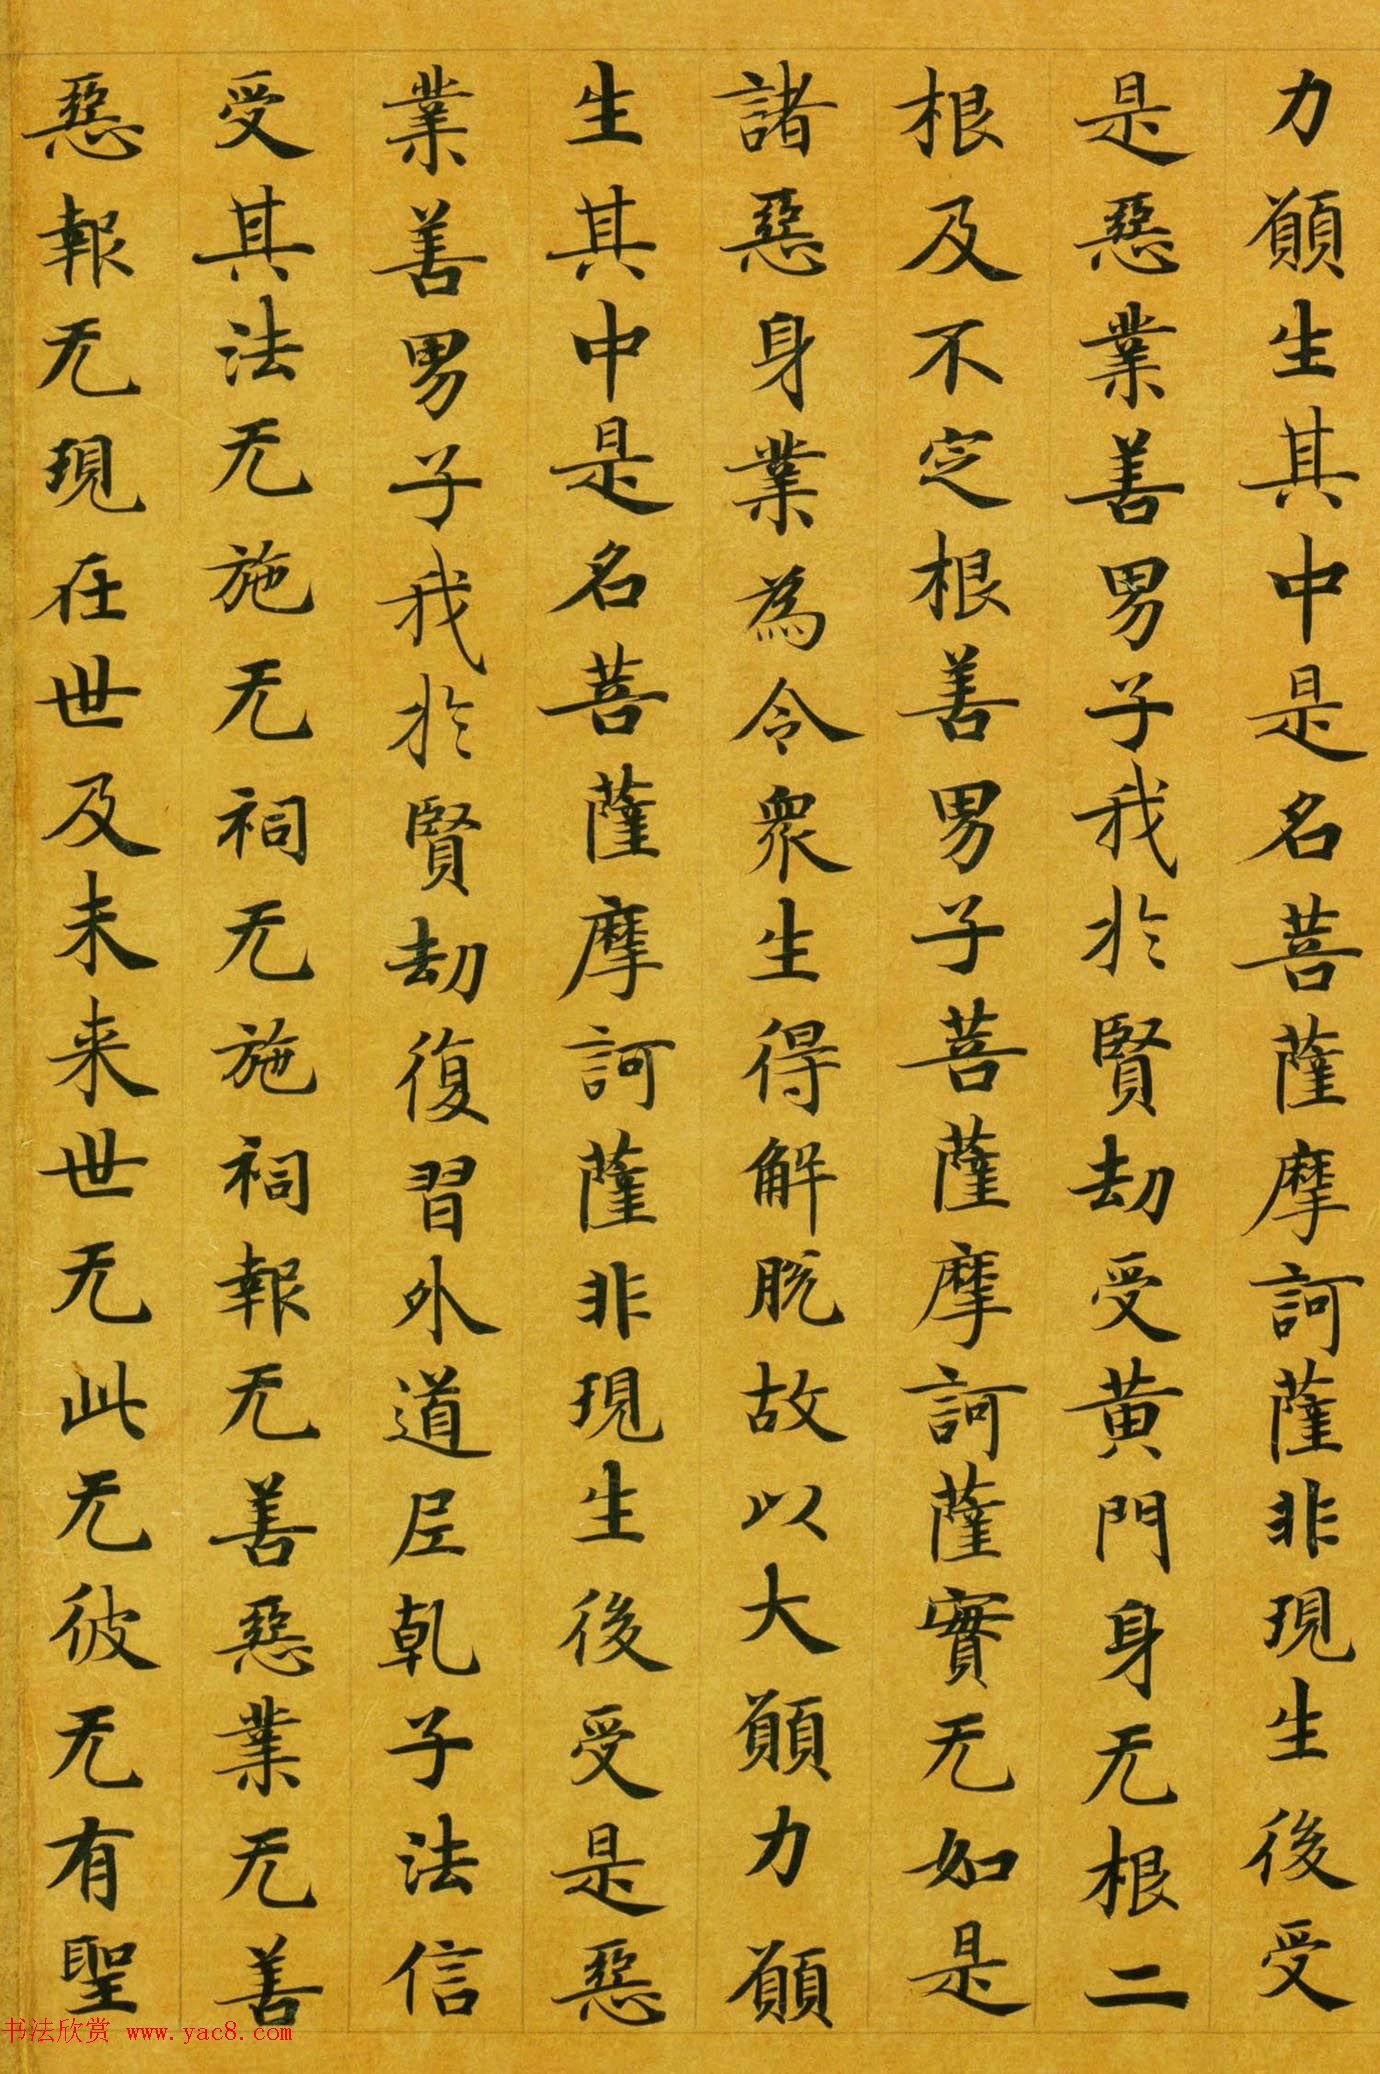 力願生其中是名菩薩摩訶薩非現生後受
是惡業善男子我於賢劫受黄門身无根二
根及不定根善男子菩薩摩訶薩實无如是
諸惡身業為令衆生得解脫故以大願力願
生其中是名菩薩摩訶薩非現生後受是惡
業善男子我於賢劫復習外道尼乹子法信
受其法无施无祠无施祠報无善惡業无善
惡報无現在世及未来世无此无彼无有聖
书法欣赏 www.yac8.com